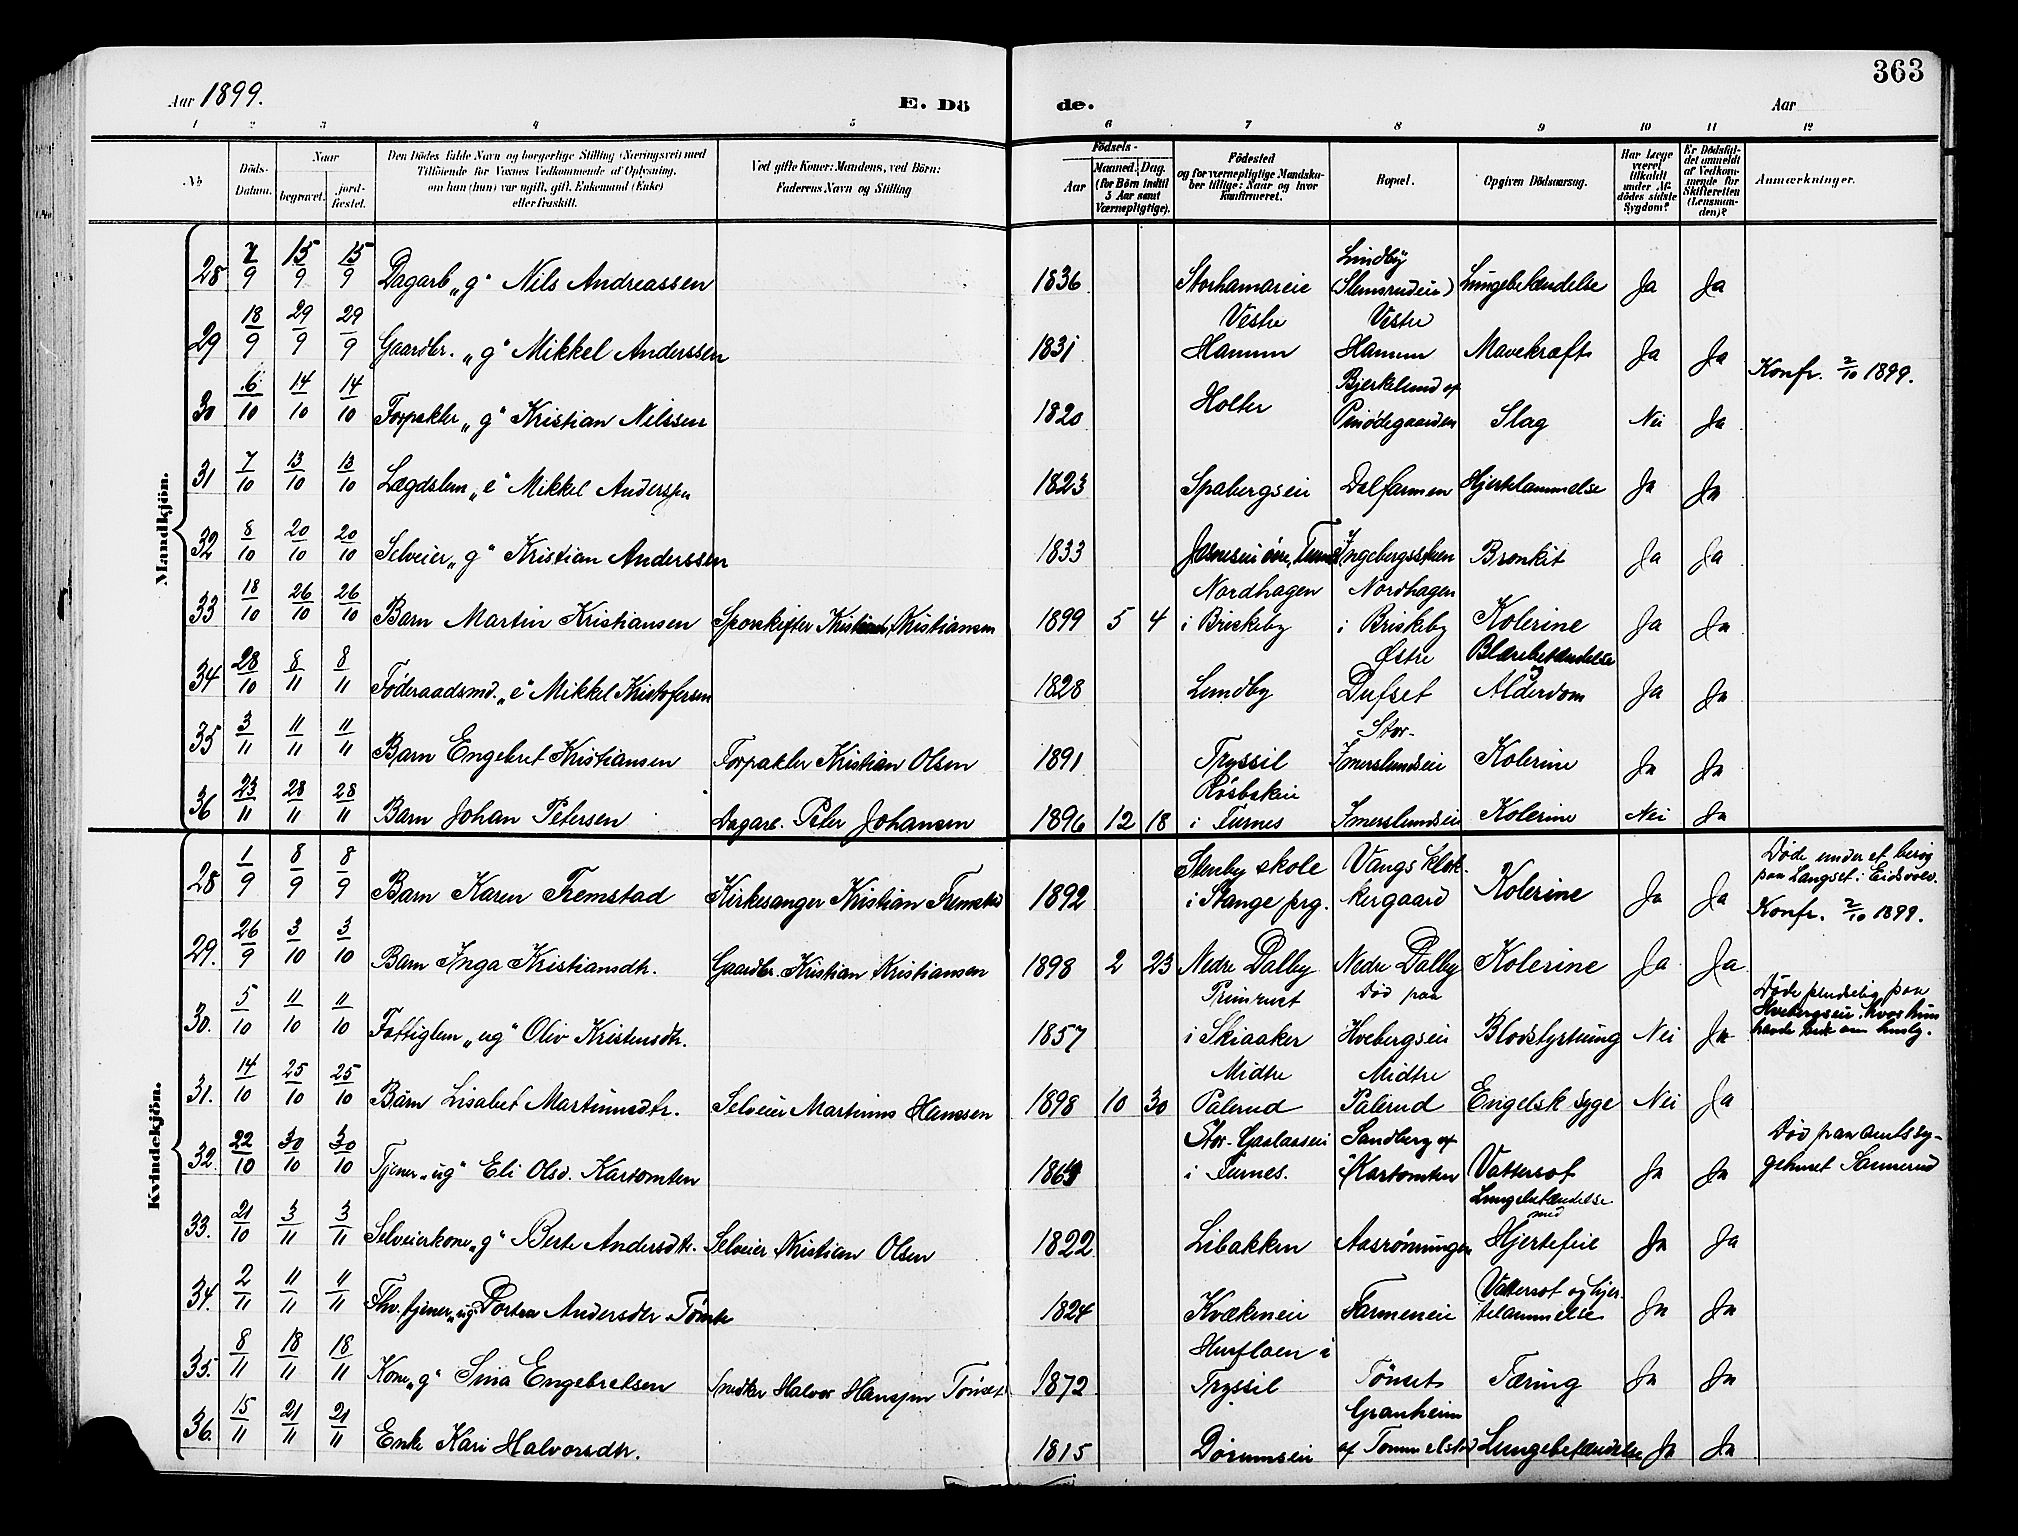 363
Aar 1899.
E. Dö
de.
Aar
1 2 3 4 5 6 7 8 9 10 11 12
No
Döds-
Datum.
Naar
begravet.
jord-
fæstet.
Den Dödes fulde Navn og borgerlige Stilling (Næringsvei) med
Tilföiende for Voxnes Vedkommende af Oplysning,
om han (hun) var ugift, gift, Enkemand (Enke)
eller fraskilt.
Ved gifte Koner: Mandens, ved Börn:
Faderens Navn og Stilling
Födsels-
Aar
Maaned. Dag.
(for Börn indtil
5 Aar samt
Værnepligtige).
Födested
og for værnepligtige Mandska-
ber tillige: Naar og hvor
Konfirmeret.
Bopæl.
Opgiven Dödsaarsag.
Har Læge
været
tilkaldt
under Af-
dödes sidste
Sygdom?
Er Dödsfal-
det anmeldt
af Vedkom-
mende for
Skifteretten
(Lensman-
den)?
Anmærkninger.
Mandkjön.
28 7/9 15/9 15/9 Dagarb „g" Nils Andreassen 1836 Storhamareie Lundby (Stensrudeie) Lungebetændelse Ja Ja
29 18/9 29/9 29/9 Gaardbr. „g" Mikkel Anderssen 1831 Vestre Hamum Vestre Hamum Mavekræft Ja Ja Konfr. 2/10 1899.
30 6/10 14/10 14/10 Forpakter „g" Kristian Nilssen 1820 Holter Bjerkelund af Pinødegaarden Slag Nei Ja
31 7/10 13/10 13/10 Lægdslem „e" Mikkel Anderssen 1823 Spabergseie Dalfarmen Hjertelammelse Ja Ja
32 8/10 20/10 20/10 Selveier „g" Kristian Anderssen 1833 Ingebergsseteren Bronkit Ja Ja
33 18/10 26/10 26/10 Barn Martin Kristiansen Sporskifter Kristian Kristiansen 1899 5 4 Nordhagen i Briskeby Nordhagen i Briskeby Kolerine Ja Ja
34 28/10 8/11 8/11 Føderaadsmd. „e" Mikkel Kristofersen 1828 Lundby Østre Dufset Blærebetændelse og Alderdom Ja Ja
35 3/11 11/11 11/11 Barn Engebret Kristiansen Forpakter Kristian Olsen 1891 Tryssil Stor-Imerslundseie Kolerine Ja Ja
36 23/11 28/11 28/11 Barn Johan Petersen Dagarb. Peter Johansen 1896 12 18 Røsbakeie i Furnes Imerslundseie Kolerine Nei Ja
Kvindekjön.
28 1/9 8/9 8/9 Barn Karen Fremstad Kirkesanger Kristian Fremstad 1892 Stenby skole i Stange prg. Vangs Klokkergaard Kolerine Ja Ja Døde under et besøg paa Langset i Eidsvold. Konfr. 2/10 1899.
29. 26/9 3/10 3/10 Barn Inga Kristiansdtr. Gaardbr. Kristian Kristiansen 1898 2 23 Nedre Dalby Nedre Dalby Kolerine Ja Ja
30. 5/10 11/10 11/10 Fattiglem „ug" Oliv Kristensdtr. 1857 Prinrust i Skiaaker Død paa Hvebergseie Blodstyrtning Nei Ja Døde pludselig paa Hvebergseie, hvor hun havde bedt om husly.
31. 14/10 25/10 25/10 Barn Lisabet Martinusdtr. Selveier Martinus Hanssen 1898 10 30 Midtre Palerud Midtre Palerud Engelsk syge Nei Ja
32. 22/10 30/10 30/10 Tjener „ug" Eli Olsd. Kartomten Stor-Gaalaaseie i Furnes. Sandberg af Kartomten Vattersot Ja Ja Død paa amtssygehuset Sannerud
33. 21/10 3/11 3/11 Selveierkone „g" Berte Andersdtr. Selveier Kristian Olsen 1822 Libakken Aasrønningen Lungebetændelse med Hjertefeil Ja Ja
34. 2/11 11/11 11/11 Fhv. tjener „ug" Dortea Andersdtr Tømte 1824 Kvækneie Farmeneie Vattersot og hjertelammelse Ja Ja
35. 8/11 18/11 18/11 Kone „g" Sina Engebretsen Snedker Halvor Hanssen Tønset 1872 Husfloen i Tryssil Tønset Tæring Ja Ja
36. 15/11 21/11 21/11 Enke Kari Halvorsdtr. 1815 Dørumseie Granheim af Tommelstad Lungebetændelse Ja Ja